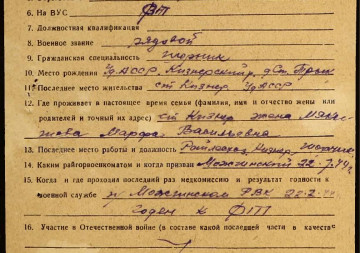 6. На ВУС ФП
7. Должностная квалификация
8. Военное звание рядовой
9. Гражданская специальность
10. Место рождения УдАССР, Кизнерский р, д Ст.
11. Последнее место жительства ст Кизнер УдАССР
12. Где проживает в настоящее время семья (фамилия, имя и отчество жены или
родителей и точный их адрес) ст Кизнер жена
Марфа Васильевна
13. Последнее место работы и должность Кизнер,
14. Каким райгорвоенкоматом и когда призван Можгинский 22.2.44г
15. Когда и где проходил последний раз медкомиссию и результат годности к
военной службе Можгинском РВК
годен к ФП
16. Участие в Отечественной войне (в составе какой последней части и в качестве